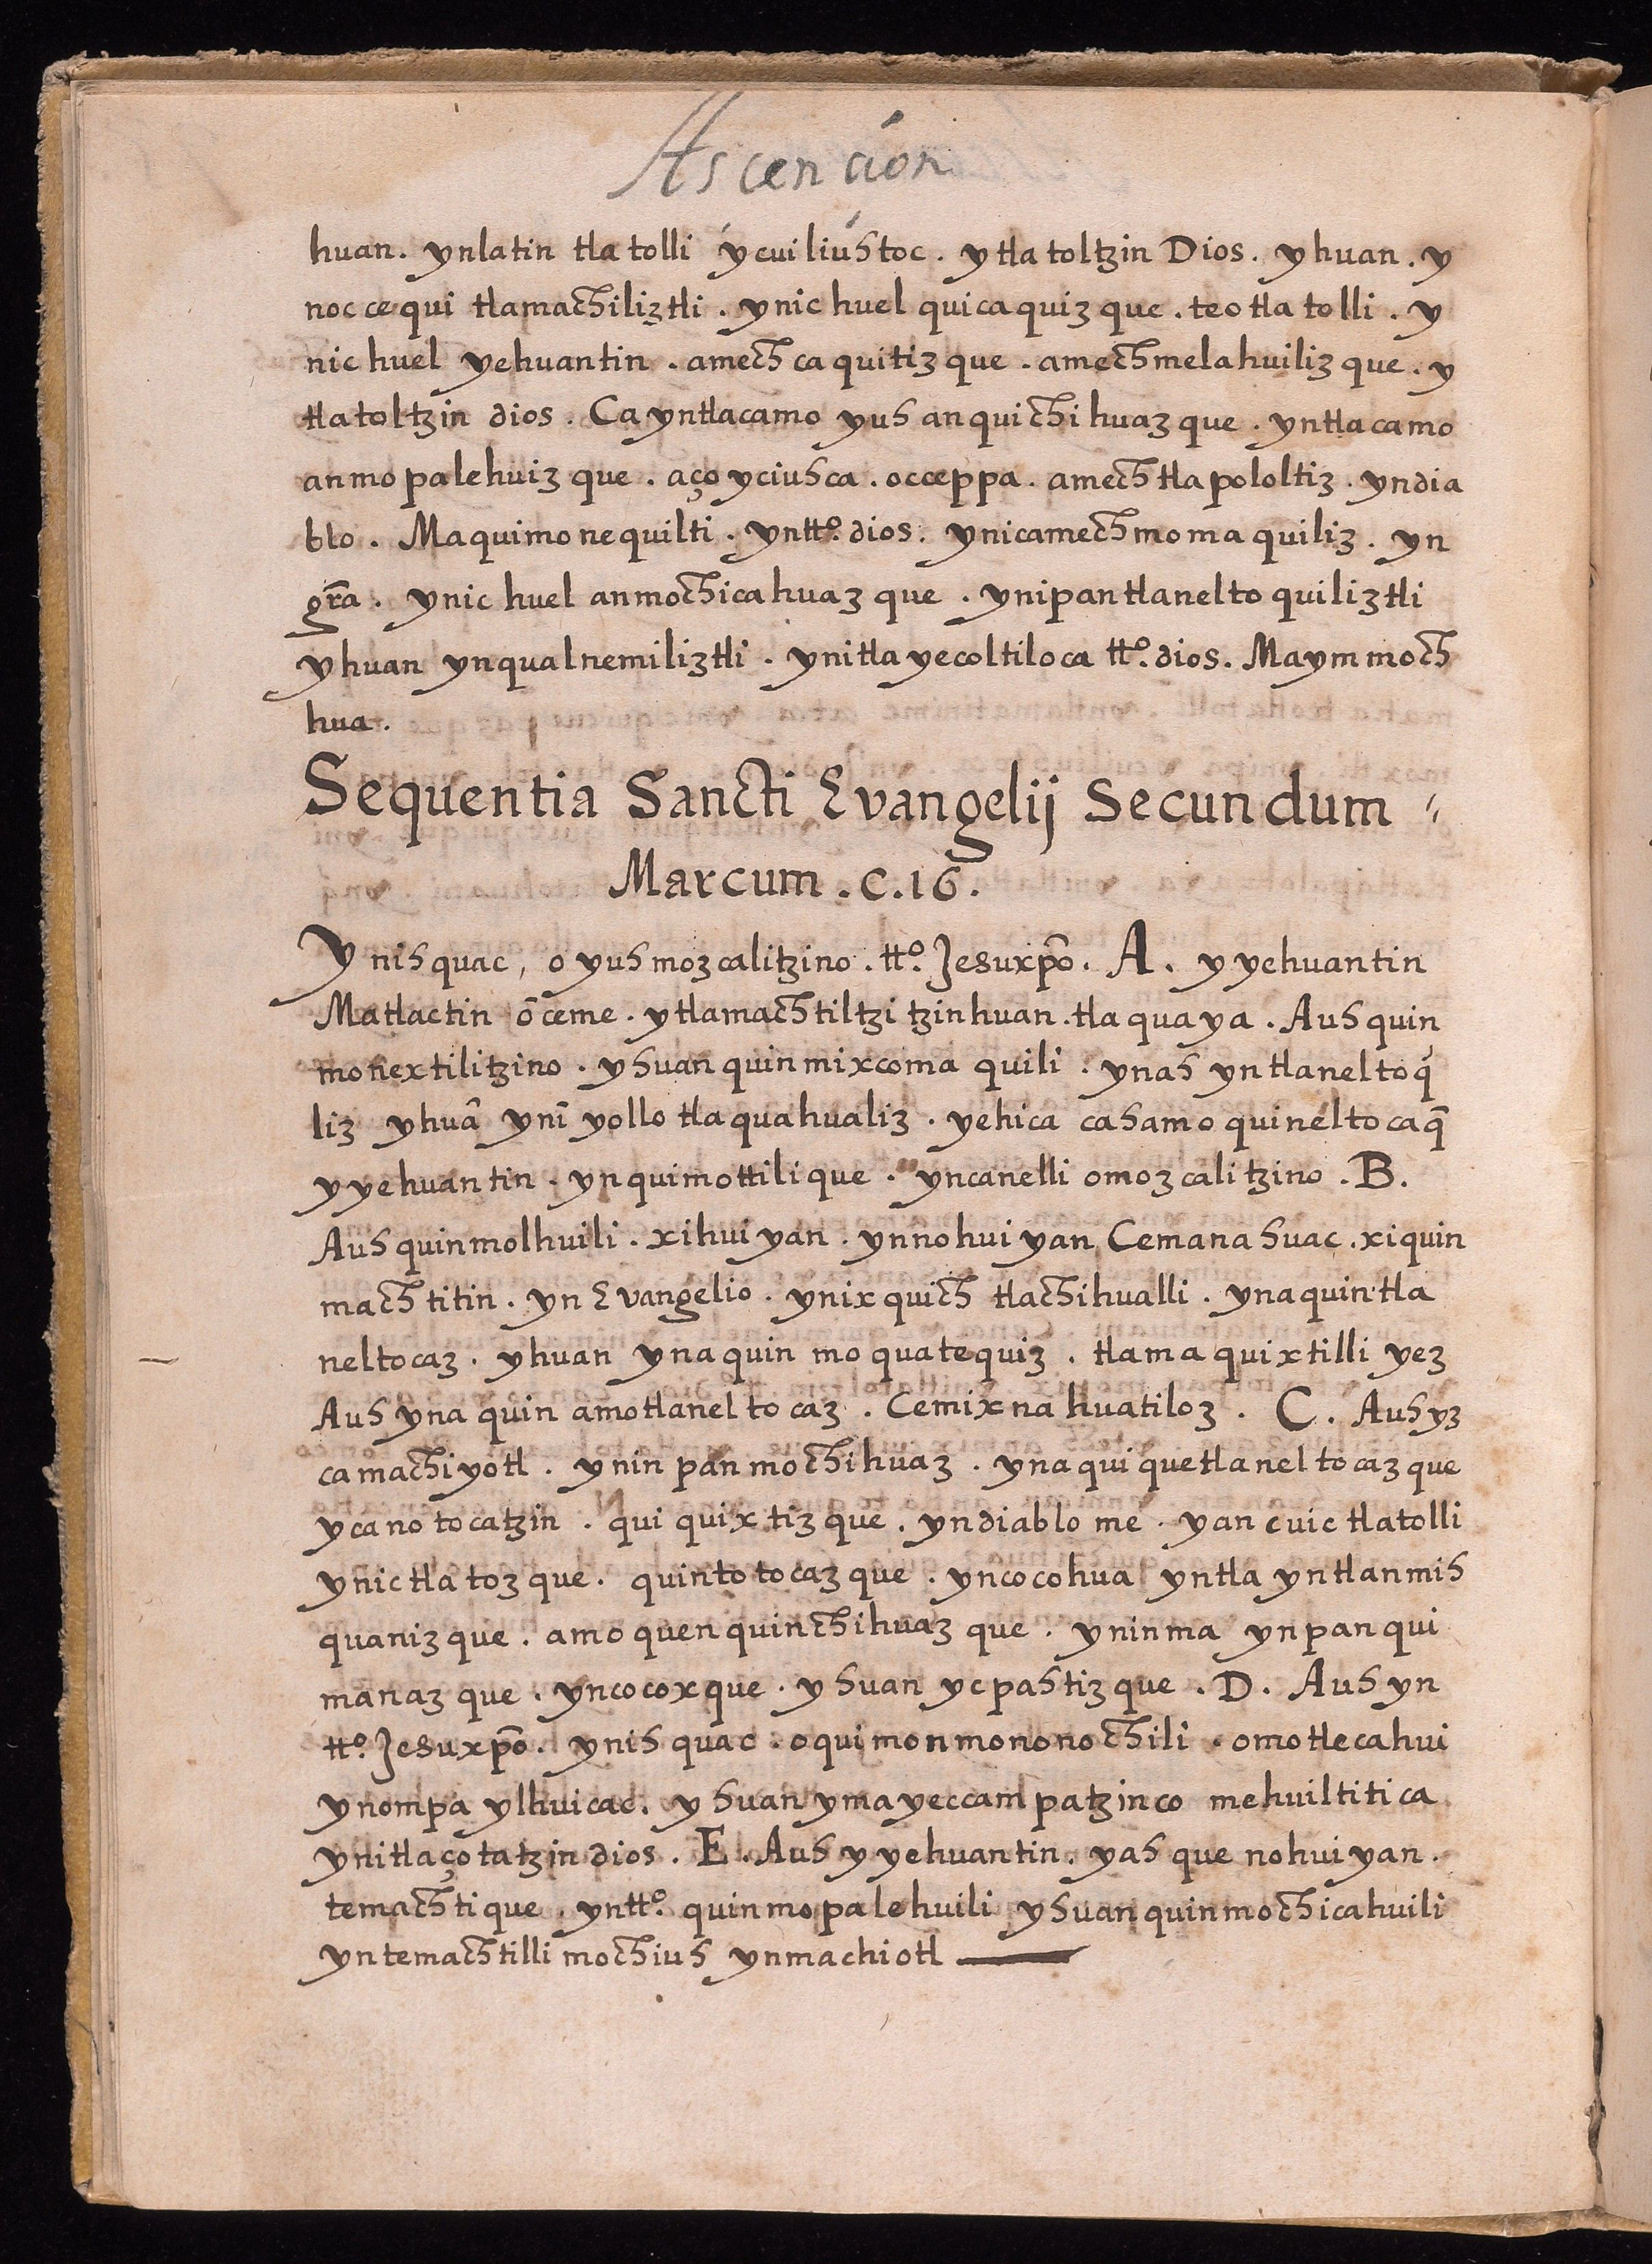 Ascención
huan. ynlatin tlatolli ycuiliuhtoc. ytlatoltzin Dios. yhuan. y
noccequi tlamachiliztli. ynic huel quicaquizque. teotlatolli. y
nic huel yehuantin. amechcaquitizque. amechmelahuilizque. y
tlatoltzin dios. Ca yntlacamo yuh anquichihuazque. yntlacamo
anmopalehuizque. aço yciuhca. occeppa. amechtlapololtiz. yndia
blo. Maquimonequilti. yntto. dios. ynicamechmomaquiliz. yn
gr̃a. ynic huel anmochicahuazque. ynipantlaneltoquiliztli
yhuan ynqualnemiliztli. ynitlayecoltiloca tto. dios. Maymmoch
hua.
Sequentia Sancti Evangelij Secundum "
Marcum. C. 16.
Ynihquac, o yuh mozcalitzino. tto. Jesuxp̃o. A. yyehuantin
Matlactin õceme. ytlamachtiltzitzinhuan. tlaquaya. Auh quin
monextilitzino. yhuan quinmixcomaquili. ynah yntlaneltoq́
liz yhuã ynĩ yollotlaquahualiz. yehica cahamo quineltocaq̃
yyehuantin. ynquimottilique. yncanelli omozcalitzino. B.
Auh quinmolhuili. xihuiyan. ynnohuiyan Cemanahuac. xiquin
machtitin. yn Evangelio. ynixquich tlachihualli. ynaquintla
neltocaz. yhuan ynaquin moquatequiz. tlamaquixtilli yez
Auh ynaquin amotlaneltocaz. Cemixnahuatiloz. C. Auh yz
ca machiyotl. ynin pan mochihuaz. ynaquiquetlaneltocazque
yca notocatzin. quiquixtizque. yndiablome. yancuic tlatolli
ynictlatozque. quintotocazque. yncocohua yntla yntlanmih
quanizque. amo quenquinchihuazque. yninma ynpanqui
manazque. yncocoxque. yhuan ycpahtizque. D. Auh yn
tto. Jesuxp̃o. ynihquac. oquimonmononochili. omotlecahui
ynompa ylhuicac. yhuan ymayeccampatzinco mehuiltitica
ynitlaçotatzin dios. E. Auh yyehuantin. yahque nohuiyan.
temachtique. yntto. quinmopalehuili yhuan quinmochicahuili
yntemachtilli mochiuh ynmachiotl